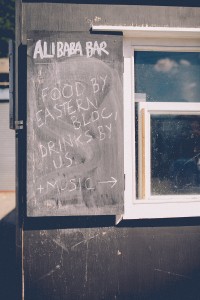 ALIBABA BAR
FOOD BY
EASTERN
BLOC,
DRINKS BY
US.
+ MUSIC →